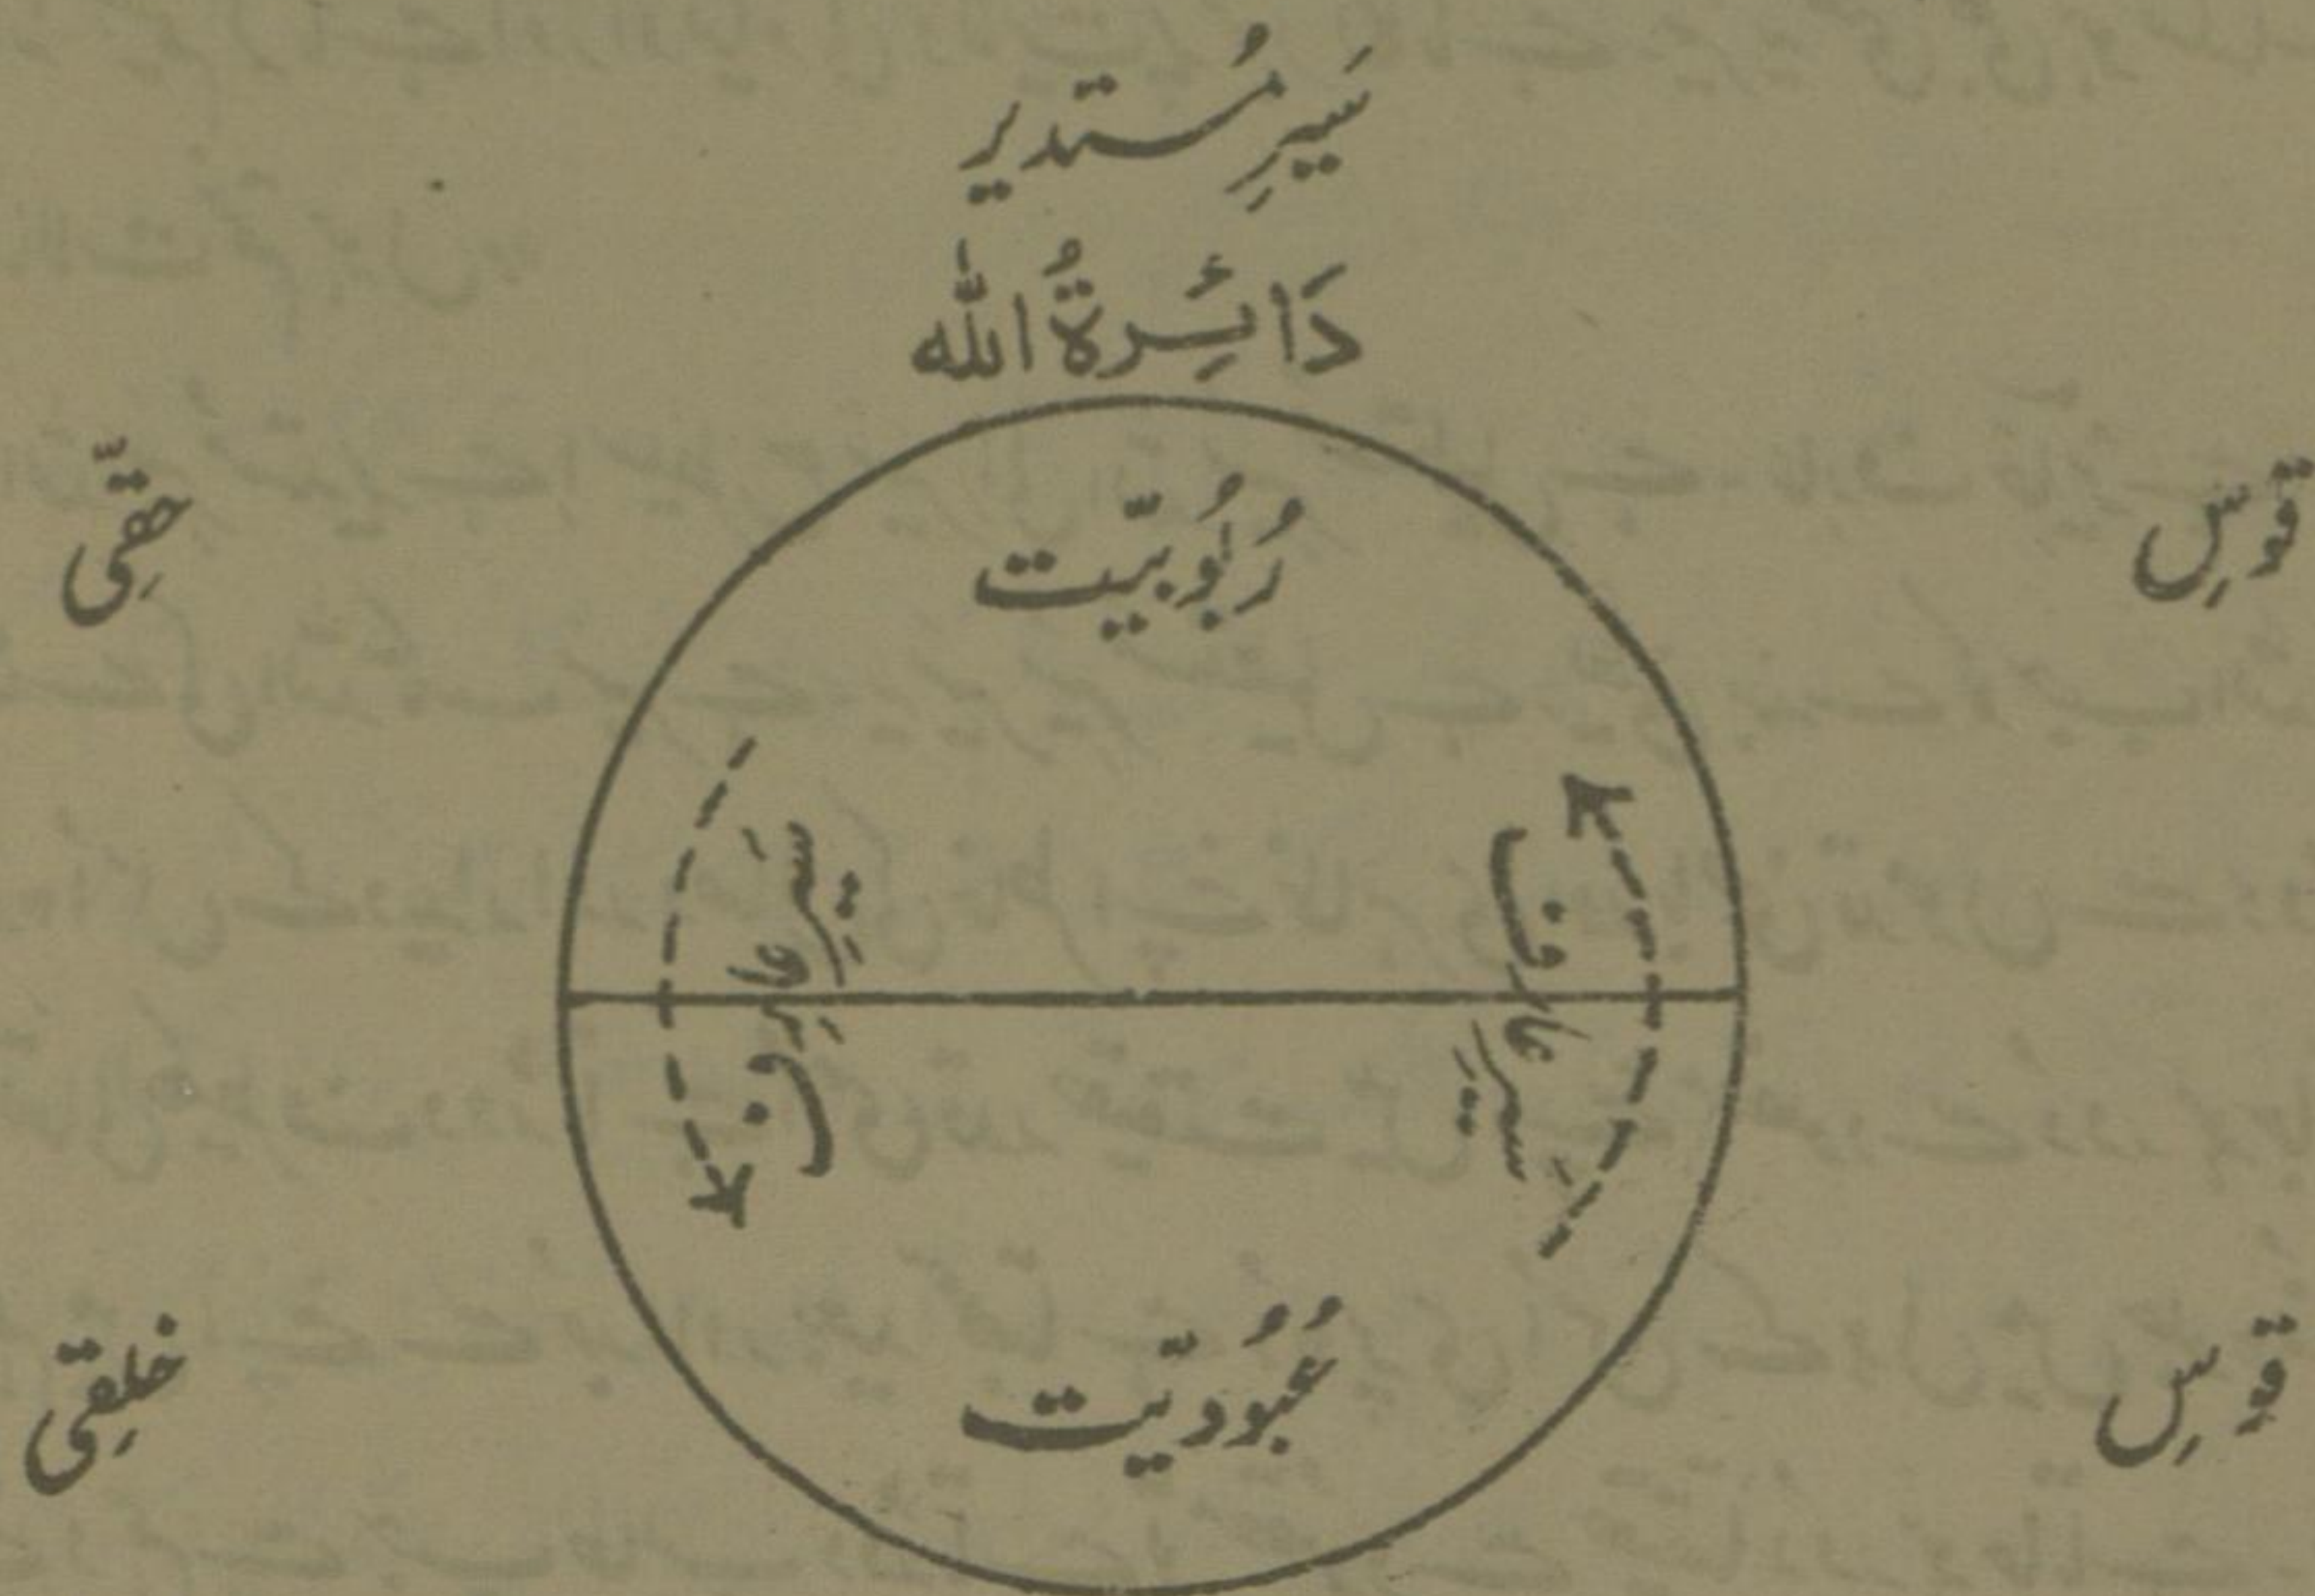 سَیرِ مُستدیر
دَائِرةُ اللّٰه
قَوسِ حقِّی
رُبُوبیّت
سَیرِ عارف
سَیرِ عارِف
عُبُودیّت
قوسِ خلقِی